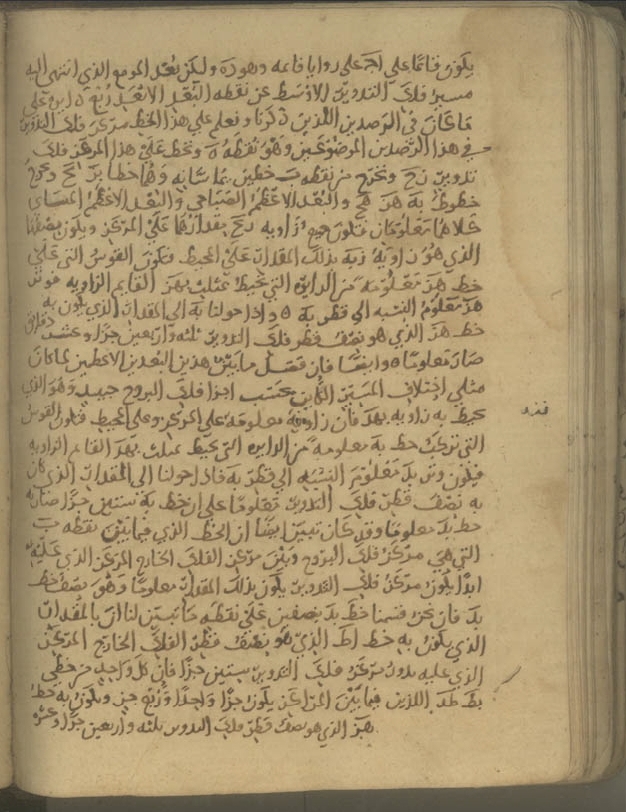 يكون قائما على ا ح على زوايا قائمه وهو د ه وليكن بعد الموضع الذي انتهى اليه
مسير فلك التدوير الاوسط عن نقطه البعد الابعد ربع دايره على
ما كان في الرصدين اللذين ذكرنا ونعلم على هذا الخط مركز فلك التدوير
في هذا الرصدين الموضوعين وهو نقطة ه ونخط على هذا المركز فلك
تدوير زح ونخرج من نقطه ب خطين يماسانه وهما خطا ب ز ب ح ونخرج
خطوط به هز هح والبعد الاعظم الصباحي والبعد الاعظم المساي
كلاهما معلومان فتكون جميع زاويه زبح بمقدارها على المركز ويكون نصفها
الذي هو زاويه زبه بذلك المقدار على المحيط فتكون القوس التي على
خط هز معلومه من الدايره التي تحيط بمثلث بهز القايم الزاويه فوتر
هز معلوم النسبه الى قطر به ه واذا حولنا به الى المقدار الذي يكون به
خط هز الذي هو نصف قطر فلك التدوير ثلثه واربعين جزا وعشر دقايق
صار معلوما ه وايضا فان فضل ما بين هذين البعدين الاعظمين لما كان
مثلي اختلاف المسير الكاين بحسب اجزا فلك البروج حينيد وهو الذي
تحيط به زاويه بهد فان زاويته معلومة على المركز وعلى المحيط فتكون القوس
التي تركب خط بد معلومه من الدايره التي تحيط بمثلث بهد القايم الزاويه
فيكون وتر بد معلوم النسبه الى قطر به فاذا حولنا الى المقدار الذي كان
به نصف قطر فلك التدوير معلوما على ان خط به ستين جزا صار به
خط بد معلوما وقد كان تبين ايضا ان الخط الذي فيما بين نقطه ب
التي هي مركز فلك البروج وبين مركز الفلك الخارج المركز الذي عليه
ابدا يكون مركز فلك التدوير يكون بذلك المقدار معلوما وهو نصف خط
بد فان نحن قسمنا خط بد بنصفين على نقطه ط تبين لنا ان بالمقدار
الذي يكون به خط اط الذي هو نصف قطر الفلك الخارج المركز
الذي عليه يدور مركز فلك التدوير ستين جزا فان كل واحد من خطي
بط طد اللذين فيما بين المراكز يكون جزا واحدا وربع جز ويكون به خط
هز الذي هو نصف قطر فلك التدوير ثلثه واربعين جزا وعشر